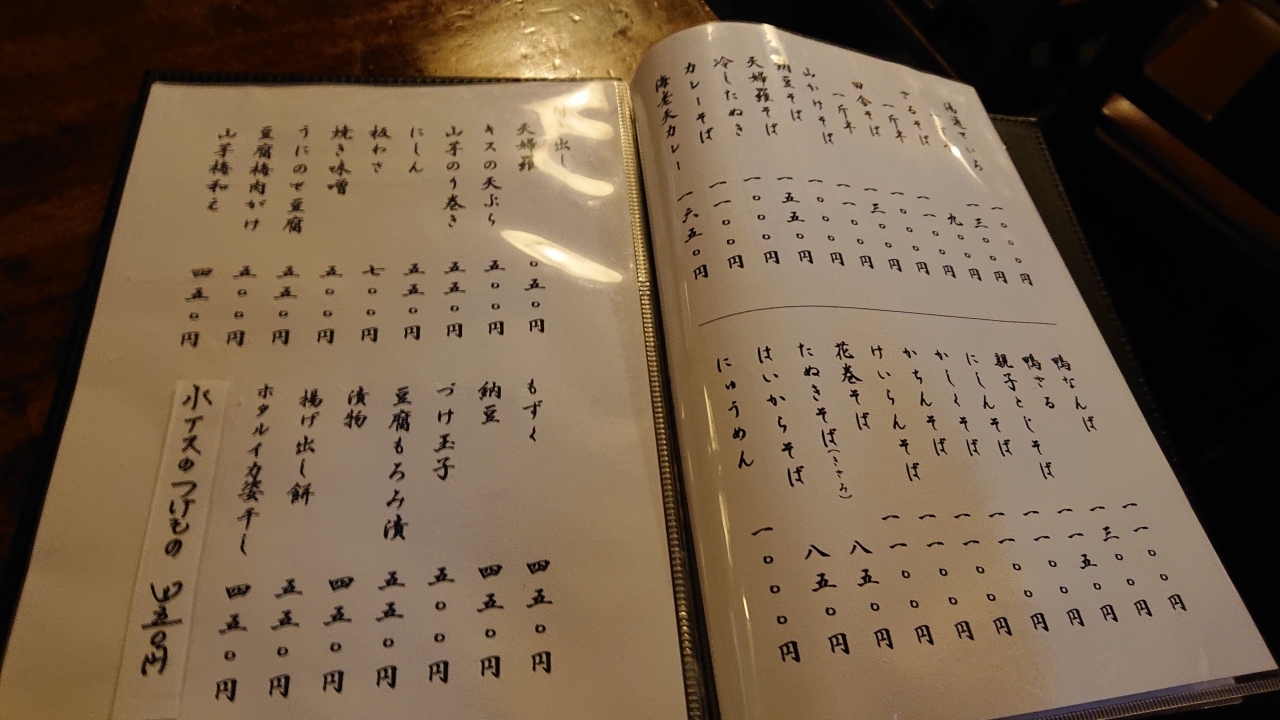 一〇〇〇円
一三〇〇円
ざるそば 九〇〇円
一斤半 一一〇〇円
田舎そば 一〇〇〇円
一斤半 一三〇〇円
山かけそば 一一〇〇円
納豆そば 一〇〇〇円
天婦羅そば 一五五〇円
冷したぬき 一〇〇〇円
カレーそば 一一〇〇円
海老天カレー 一六五〇円
鴨なんば 一一〇〇円
鴨ざる 一三〇〇円
親子とじそば 一一五〇円
にしんそば 一一〇〇円
かしくそば 一一〇〇円
かちんそば 一一〇〇円
けいらんそば 一一〇〇円
花巻そば 一一〇〇円
たぬきそば(きざみ) 八五〇円
はいからそば 八五〇円
にゅうめん 一〇〇〇円
き出し
天婦羅 〇五〇円
キスの天ぷら 五〇〇円
山芋のり巻き 五五〇円
にしん 五五〇円
板わさ 七〇〇円
焼き味噌 五〇〇円
うにのせ豆腐 五五〇円
豆腐梅肉がけ 五〇〇円
山芋梅和え 四五〇円
もずく 四五〇円
納豆 四五〇円
づけ玉子 五〇〇円
豆腐もろみ漬 五五〇円
漬物 四五〇円
揚げ出し餅 五五〇円
ホタルイカ姿干し 四五〇円
水ナスのつけもの 四五〇円